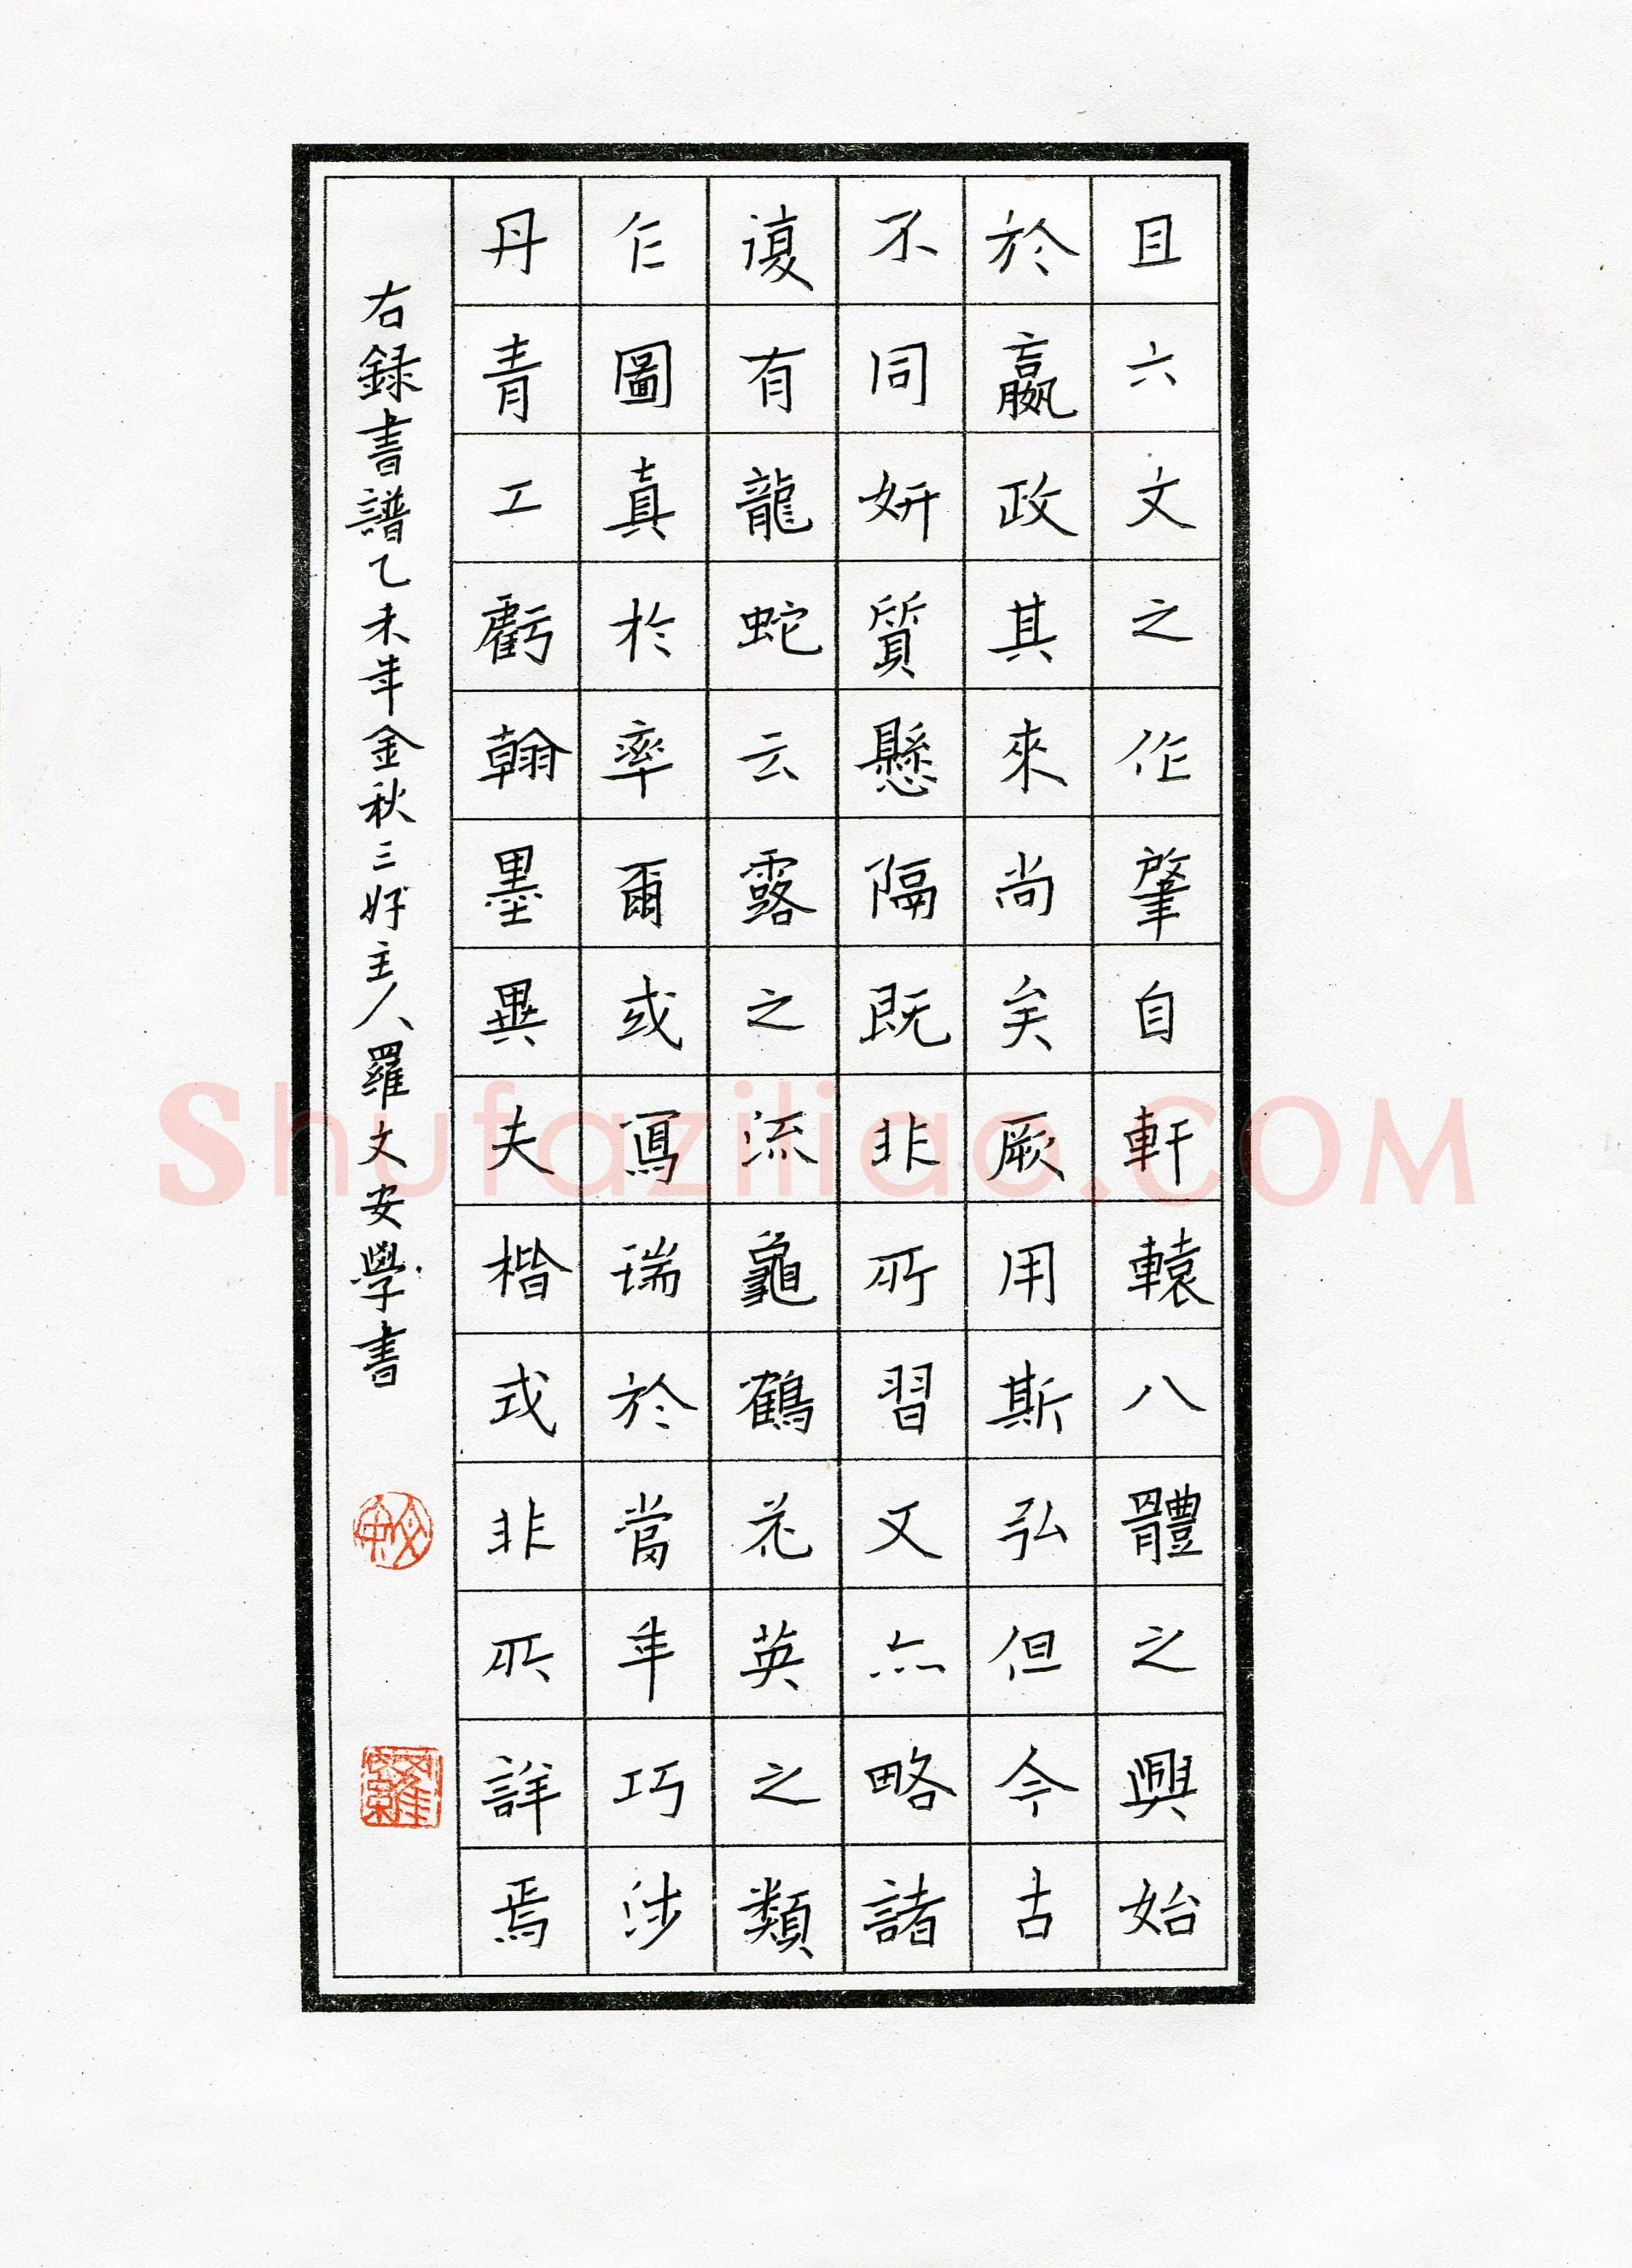 且六文之作肇自軒轅八體之興始
於嬴政其來尚矣厥用斯弘但今古
不同妍質懸隔既非所習又亦略諸
復有龍蛇云露之流龜鶴花英之類
乍圖真於率爾或寫瑞於當年巧涉
丹青工虧翰墨異夫楷式非所詳焉
右錄書譜乙未年金秋三好主人羅文安學書
Shufaziliao.COM